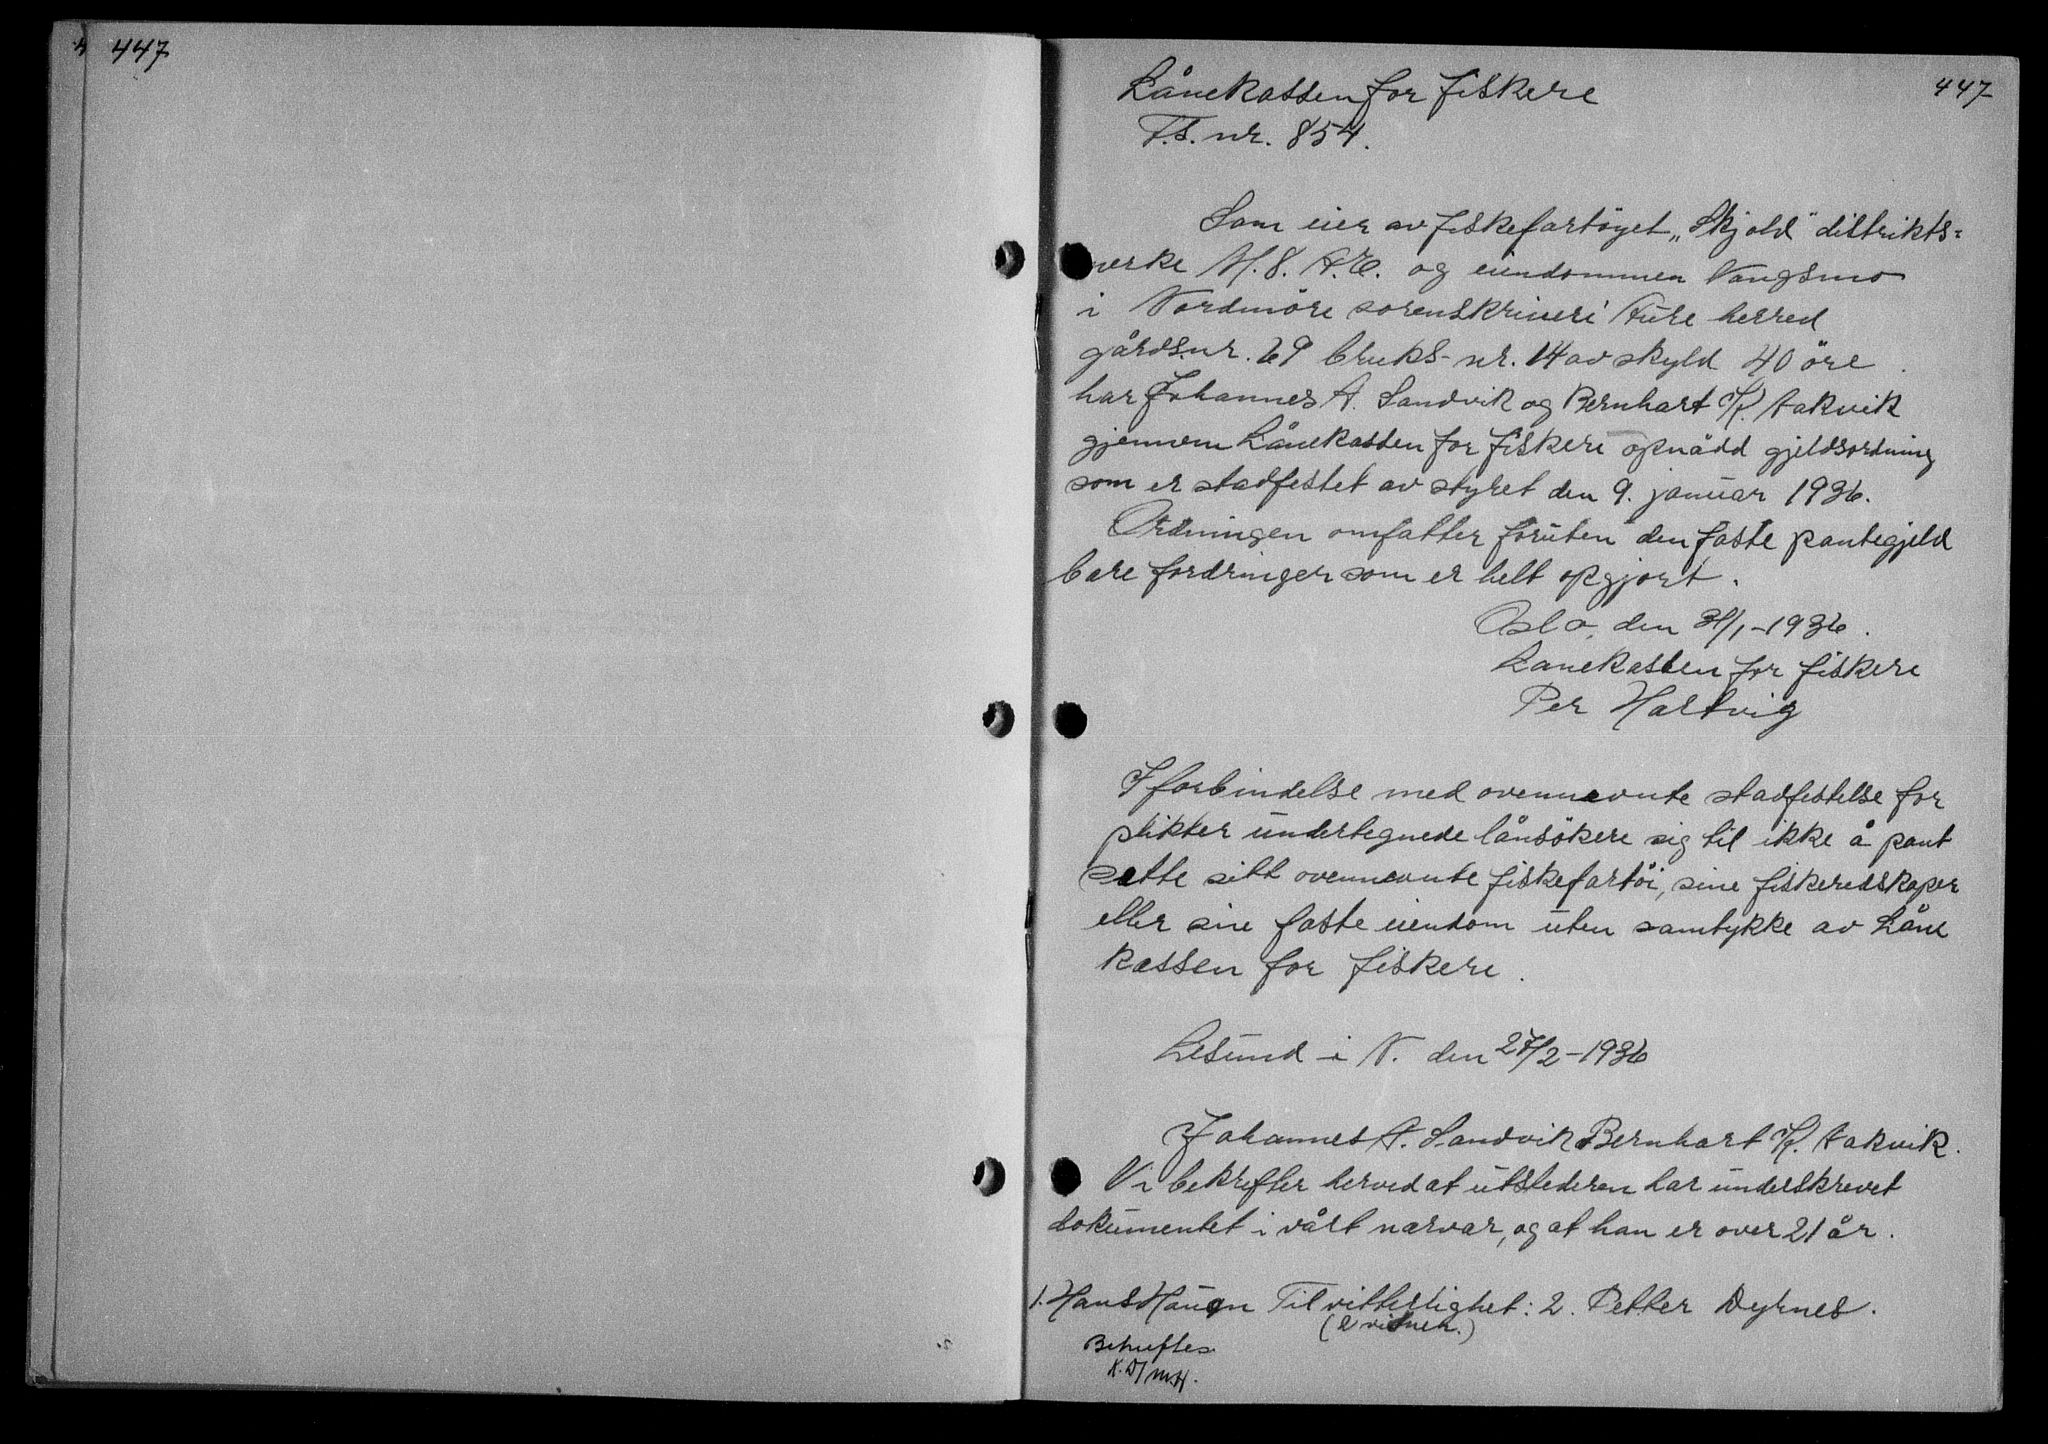 447
447
Lånekassen for fiskere
T.S. nr. 854.
Som eier av fiskefartöyet „Skjold" distrikts=
merke M. 8. A.E. og eiendommen Vangsmo
i Nordmöre sorenskriveri Aure herred
gårdsnr. 69 bruks-nr. 14 av skyld 40 öre.
har Johannes A. Sandvik og Bernhart H. Aakvik
gjennem Lånekassen for fiskere opnådd gjeldsordning
som er stadfestet av styret den 9. januar 1936.
Ordningen omfatter foruten den faste pantegjeld
bare fordringer som er helt opgjort.
Oslo, den 31/1-1936.
Lanekassen for fiskere
Per Hartvig
I forbindelse med ovennevnte stadfestelse for
plikter undertegnede lånsökere sig til ikke å pant
sette sitt ovennevnte fiskefartöi, sine fiskeredskaper
eller sine faste eiendom uten samtykke av Låne
kassen for fiskere.
Lesund i N. den 27/2-1936
Johannes A. Sandvik Bernhart H. Aakvik.
Vi bekrefter herved at utstederen har underskrevet
dokumentet i vårt nærvær, og at han er over 21 år.
1. Hans Haugn Til vitterlighet: 2. Petter Dyrnes.
(2 vitner.)
Bekreftes
K.D/M.H.